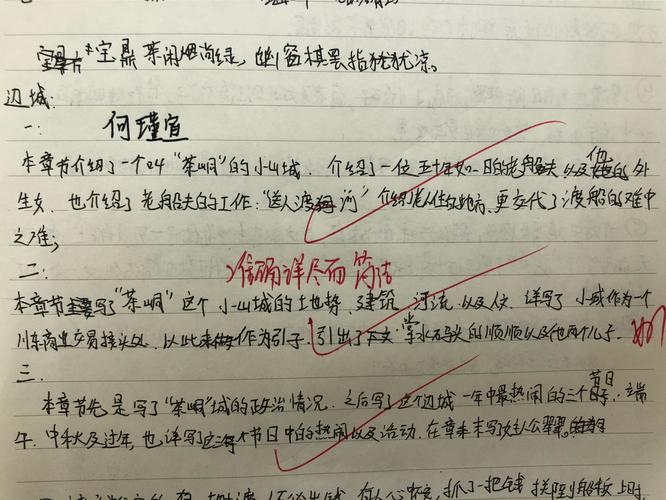 宝鼎茶闲烟尚绿，幽窗棋罢指犹凉。
边城
一：何瑾宣
本章节介绍了一个叫"茶峒"的小山城，介绍了一位五十年如一日的老船夫以及他的外
生女，也介绍了老船夫的工作："送人渡河"介绍老人住的地方，更交代了渡船的难中
之难；
二：准确详尽而简洁
本章节写了"茶峒"这个小山城的土地势、建筑、河流以及人文，详写了小城作为一个
川东商业交易接头处，以此来作为引子，引出了下文掌水码头的顺顺以及他两个儿子。
三．
本章节先是写了"茶峒"城的政治情况，之后写了这个边城一年中最热闹的三个节日：端
午、中秋及过年，也详写了这三个节日中的热闹以及活动，在章末写女主人公翠翠
有人心不安，抓了一把钱掷到船板上时，